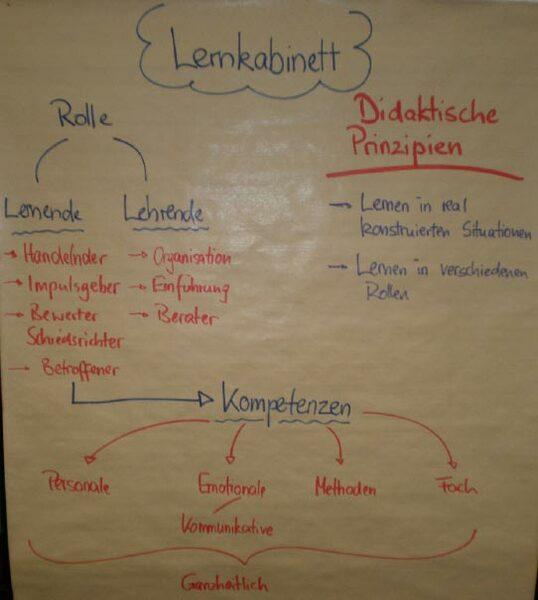 Lernkabinett
Rolle
Lernende
→ Handelnder
→ Impulsgeber
→ Bewerter
Schiedsrichter
→ Betroffener
Lehrende
→ Organisation
→ Einführung
→ Berater
Didaktische
Prinzipien
→ Lernen in real
konstruierten Situationen
→ Lernen in verschiedenen
Rollen
Kompetenzen
Personale
Emotionale
Kommunikative
Methoden
Fach
Ganzheitlich